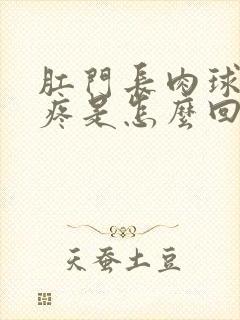 肛門長肉球
疼是怎麼回
天蚕土豆